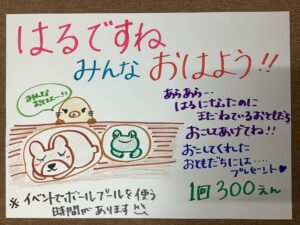 はるですね
みんな おはよう!!
みんなおはよー!!
あらあら…
はるになったのに
まだねているおともだち
おこしてあげてね!!
おこしてくれた
おともだちには…
プレゼント♥
1回300えん
※イベントでボールプールを使う
時間があります